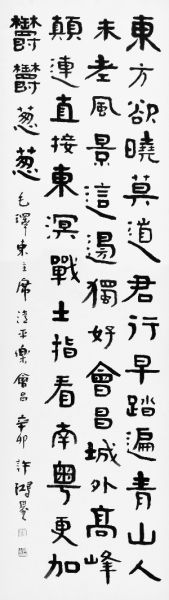 東方欲曉莫道君行早踏遍青山人
未老風景這邊獨好會昌城外高峰
顛連直接東溟戰士指看南粵更加
鬱鬱葱葱 毛澤東主席清平樂會昌 辛卯 許鴻